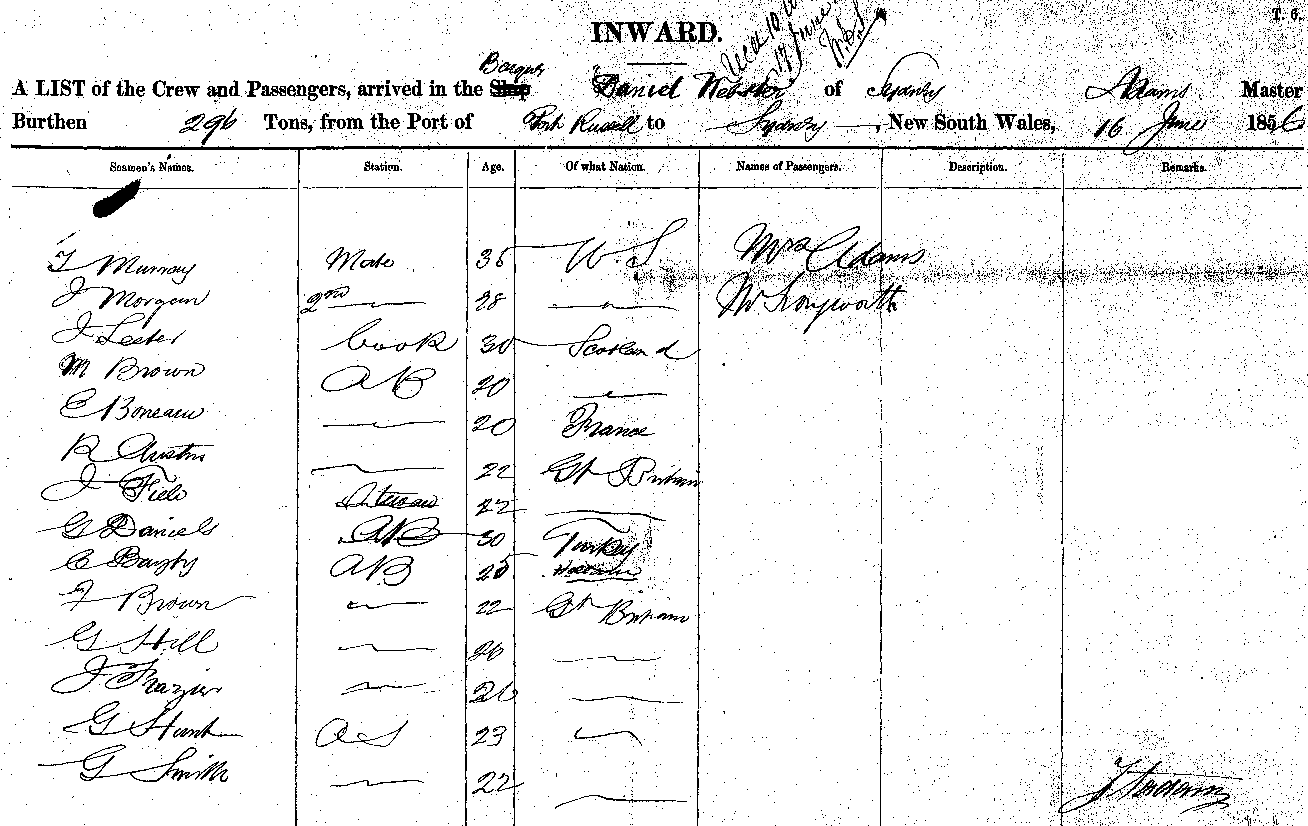 T. 6.
INWARD.
Barque
A LIST of the Crew and Passengers, arrived in the Ship Daniel Webster of Sydney Adams Master
Burthen 296 Tons, from the Port of Port Russell to Sydney, New South Wales, 16 June 1856
Seamen's Names. Station. Age. Of what Nation. Names of Passengers. Description. Remarks.
T Murray Mate 35 U.S. Mrs Adams
J Morgan 2nd — 28 — Mr Longworth
J Lester Cook 30 Scotland
M Brown AB 20 —
C Boneau — 20 France
R Austin — 22 Gt Britain
J Field Steward 22 —
G Daniels AB 30 Turkey
C Bayly AB 25
J Brown — 22 Gt Britain
G Hill — 26 —
J Frazier — 26 —
G Hunt OS 23 —
G Smith — 22 —